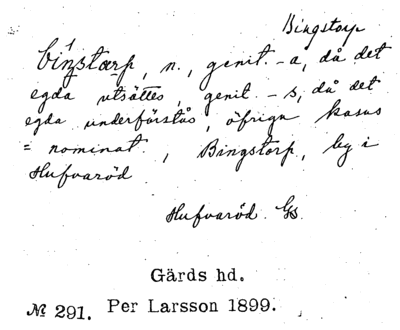 Bingstorp
bingstarp, n., genit. -a, då det
egda utsättes, genit. -s, då det
egda underförstås, öfriga kasus
= nominat., Bingstorp, by i
Hufvaröd
Hufvaröd Gs
Gärds hd.
№ 291. Per Larsson 1899.